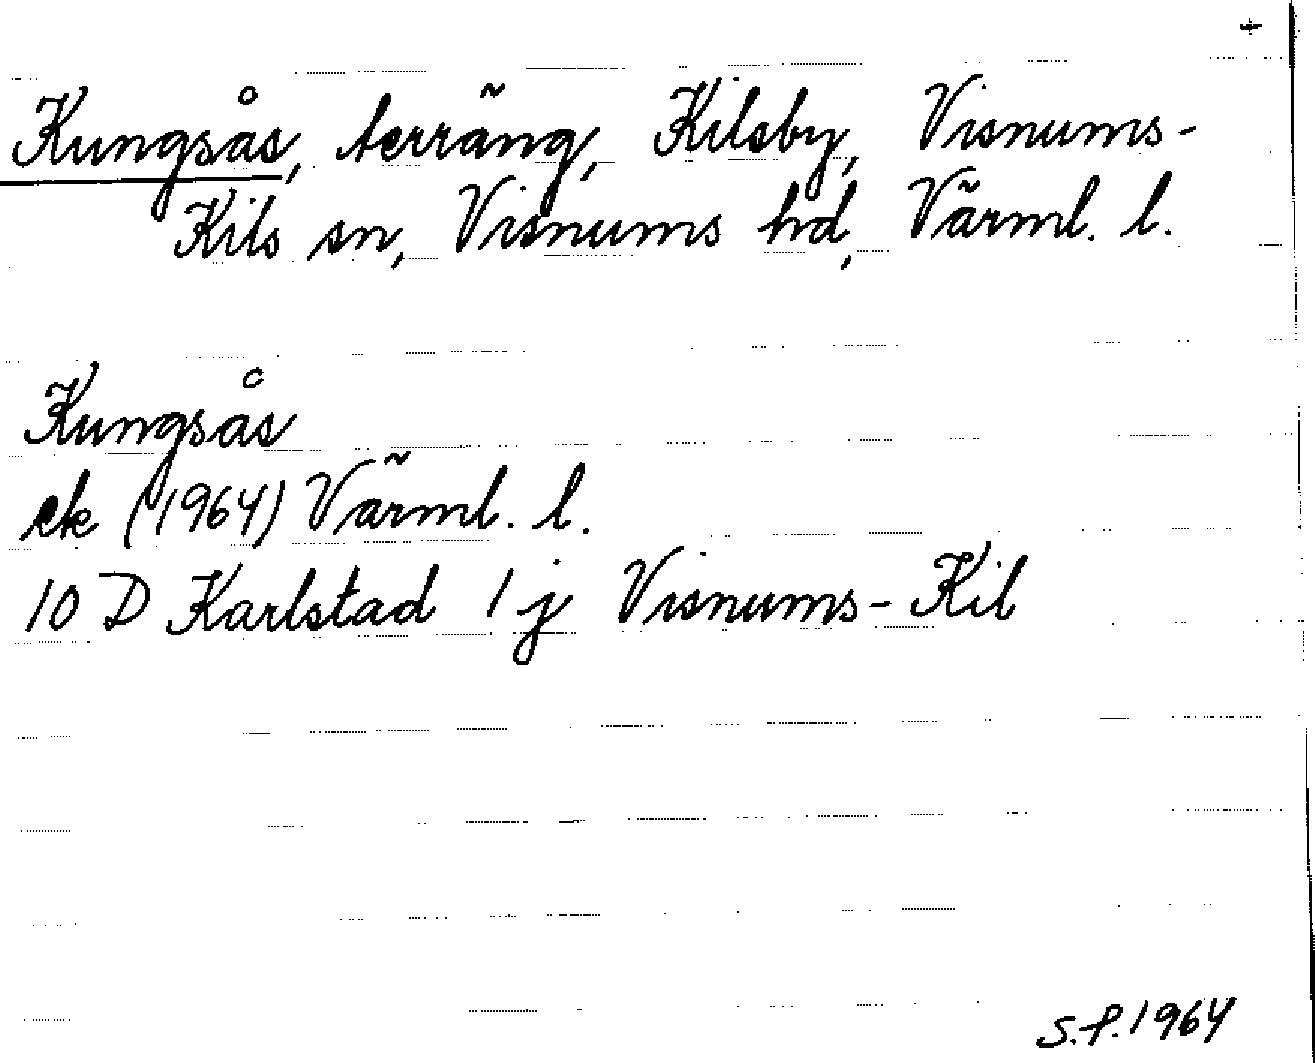 +
Kungsås, terräng, Kilsby, Visnums-
Kils sn, Visnums hd, Värml. l.
Kungsås
ek (1964) Värml. l.
10 D Karlstad 1 j Visnums-Kil
S.P. 1964